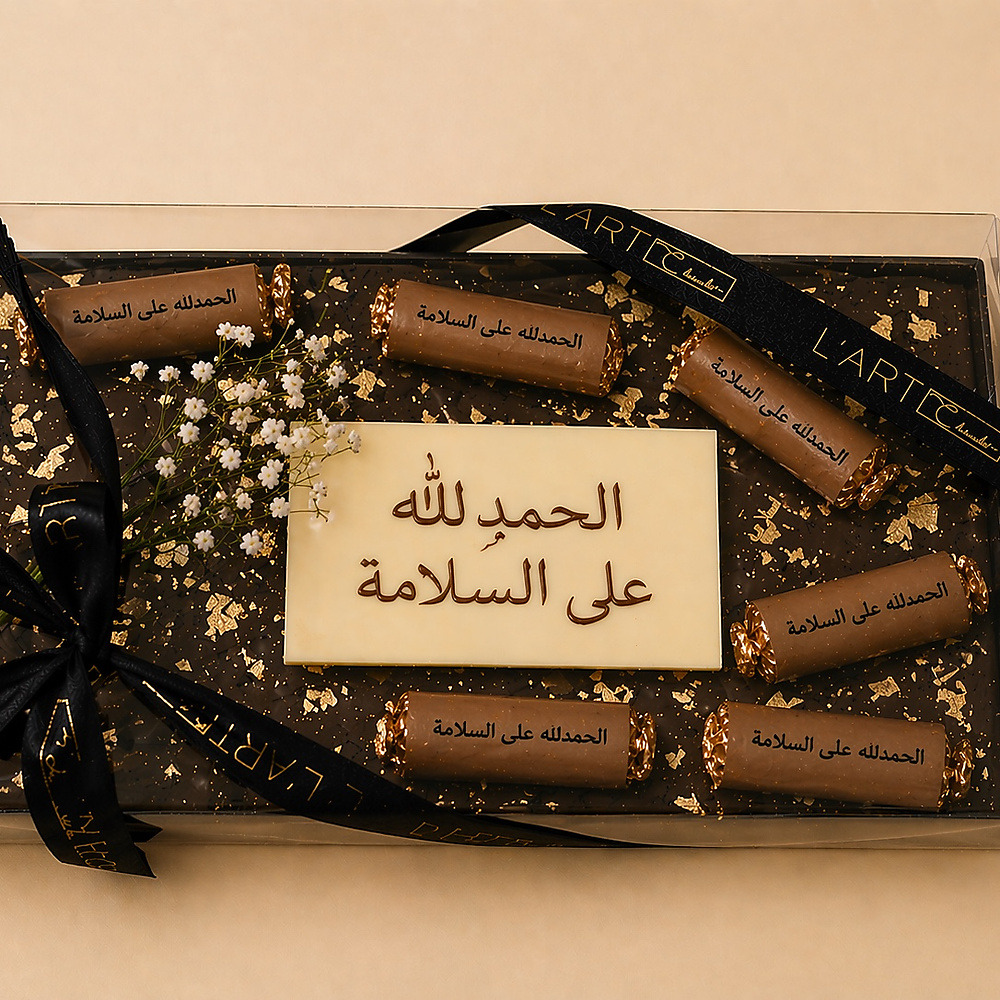 الحمدلله على السلامة
الحمدلله على السلامة
الحمدلله على السلامة
الحمد لله
على السلامة
الحمدلله على السلامة
الحمدلله على السلامة
الحمدلله على السلامة
L'ART
L'ART
L'ART